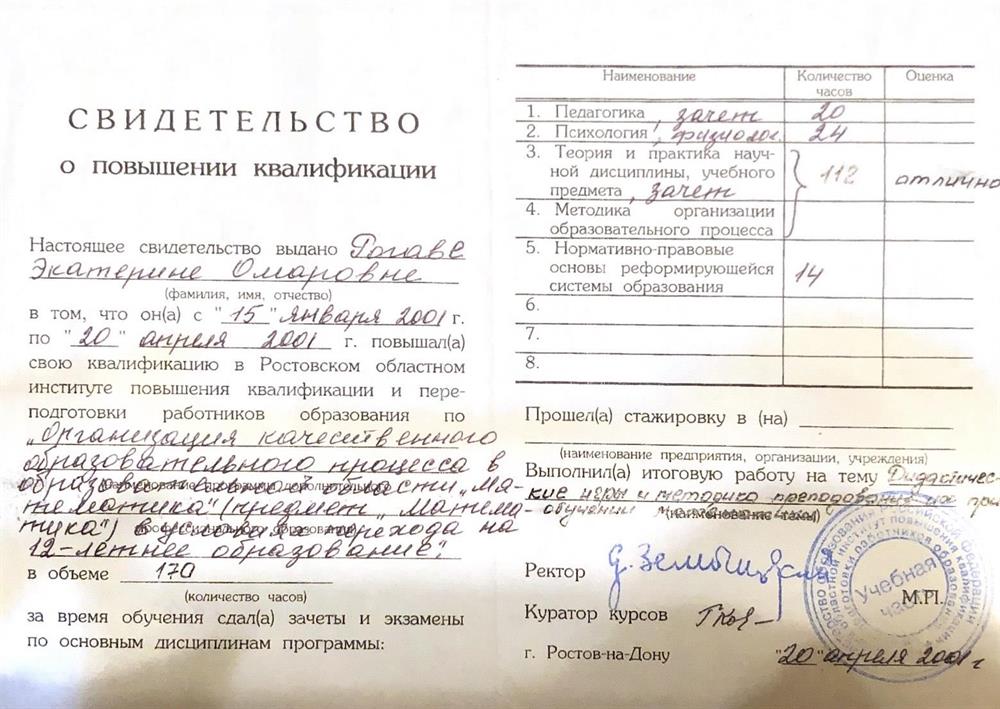 СВИДЕТЕЛЬСТВО
о повышении квалификации
Настоящее свидетельство выдано Рогаве
Екатерине Омаровне
(фамилия, имя, отчество)
в том, что он(а) с "15" января 2001 г.
по "20" апреля 2001 г. повышал(а)
свою квалификацию в Ростовском областном
институте повышения квалификации и пере-
подготовки работников образования по
„Организация качественного
образовательного процесса в
образовательной области „Ма-
(наименование программы дополнительного
тематика" (предмет „Матема-
тика") в условиях перехода на
профессионального образования)
12-летнее образование"
в объеме 170
(количество часов)
за время обучения сдал(а) зачеты и экзамены
по основным дисциплинам программы:
Наименование Количество часов Оценка
1. Педагогика, зачет 20
2. Психология, физиолог. 24
3. Теория и практика науч-
ной дисциплины, учебного
предмета, зачет 112 отлично
4. Методика организации
образовательного процесса
5. Нормативно-правовые
основы реформирующейся
системы образования 14
6.
7.
8.
Прошел(а) стажировку в (на)
(наименование предприятия, организации, учреждения)
Выполнил(а) итоговую работу на тему Дидактичес-
кие игры и методика преподавания при
обучении
(наименование темы)
Ректор
Куратор курсов
Учебная
часть
М.П.
г. Ростов-на-Дону "20" апреля 2001 г